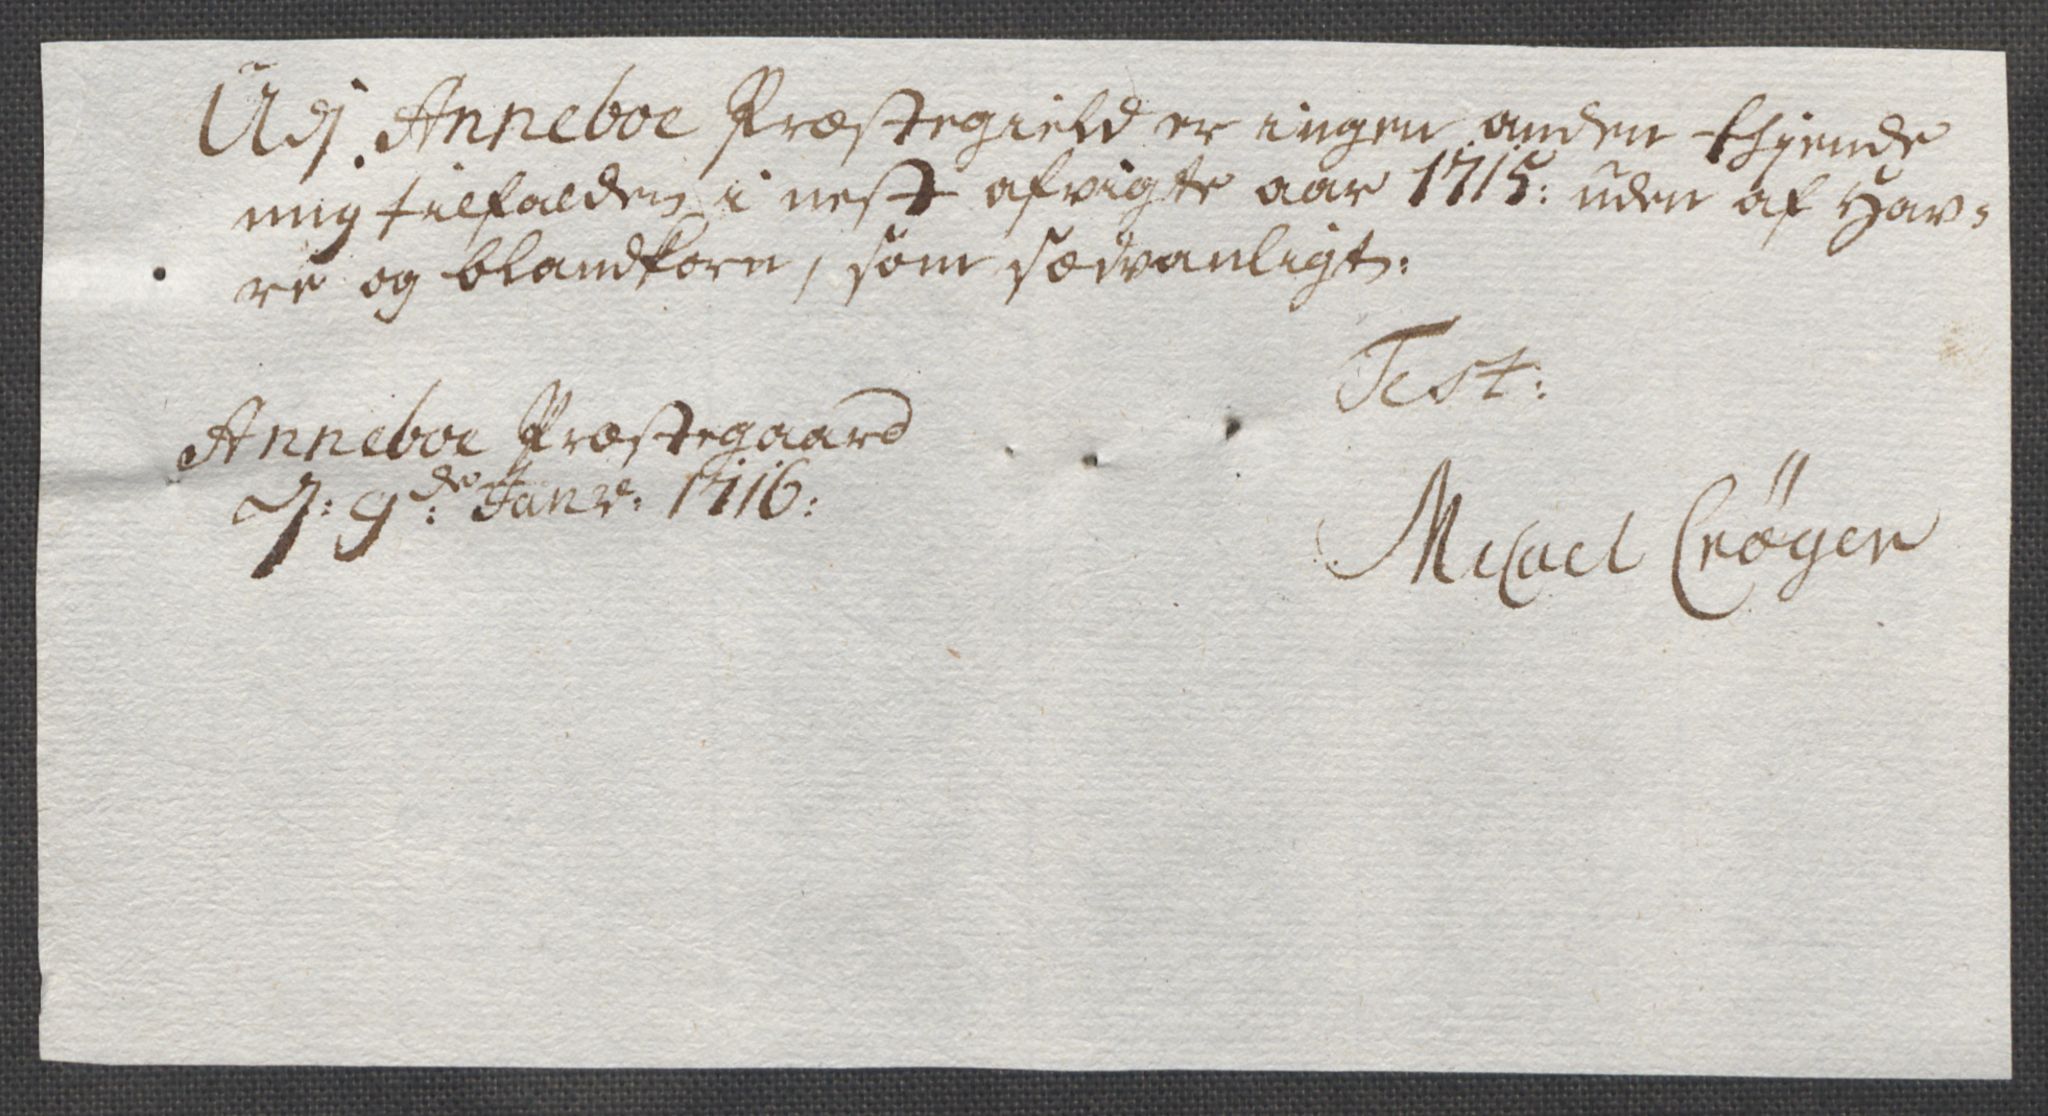 Udj Anneboe Præstegield er ingen anden thjende
mig tilfalden i nest afvigte aar 1715: uden af Hav=
re og blandkorn, som sædvanligt:
Test:
Anneboe Præstegaard
d: 9de Janv: 1716:
Micael Crøger